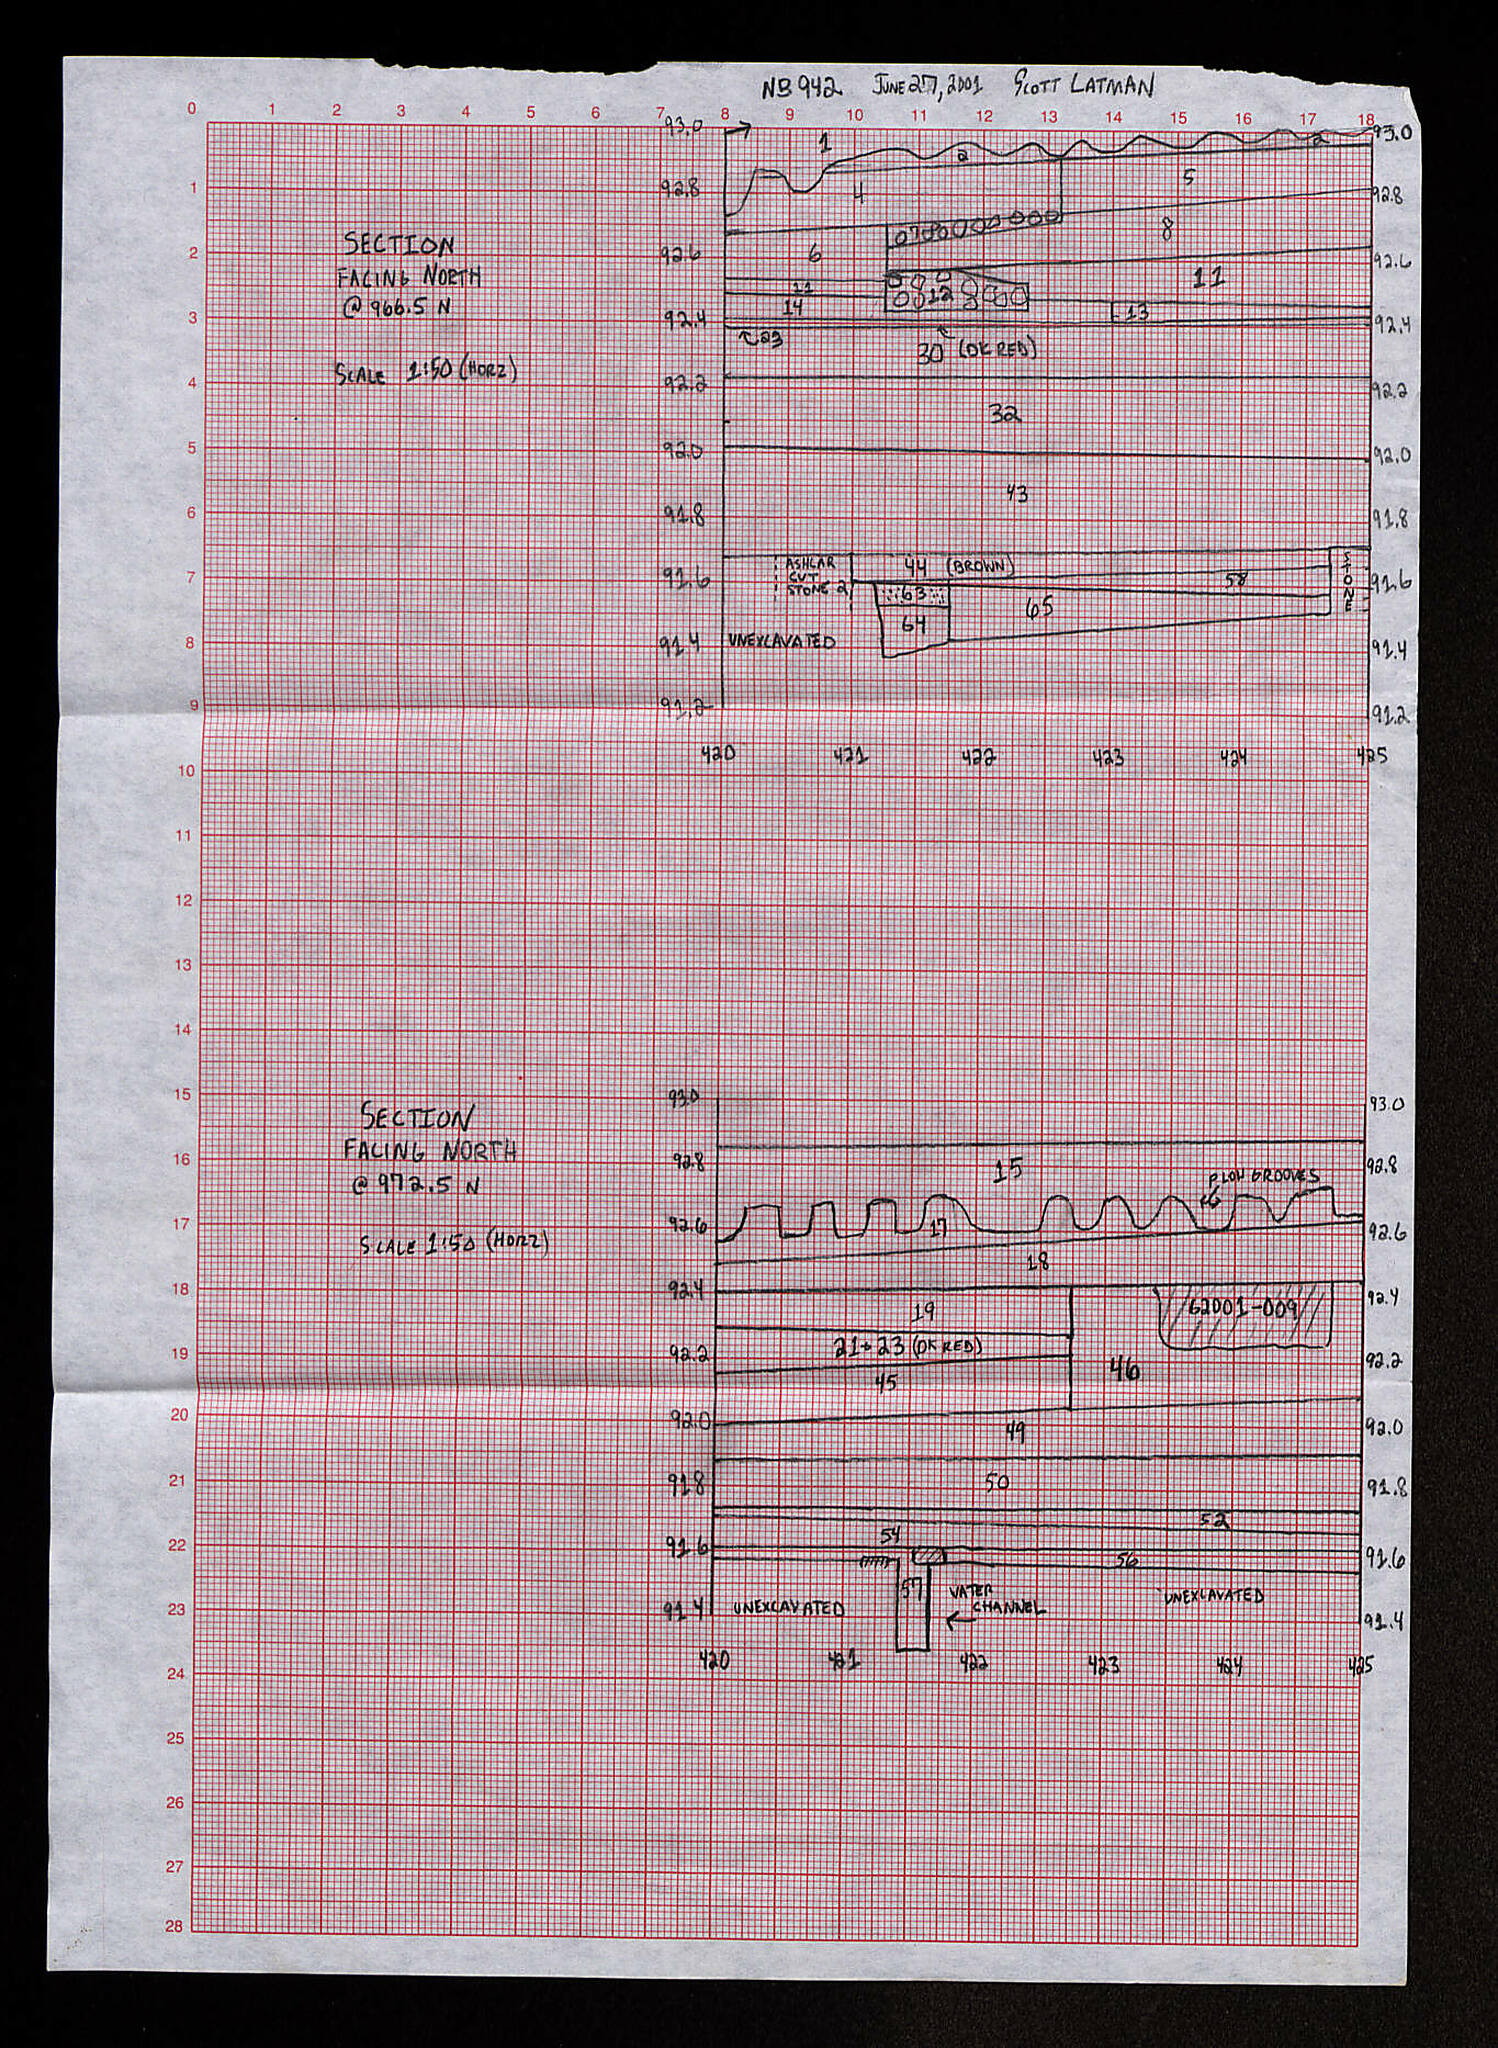 NB 942 JUNE 27, 2001 SCOTT LATMAN
0 1 2 3 4 5 6 7 8 9 10 11 12 13 14 15 16 17 18
93.0 93.0
1 2 2
1 92.8 4 5 92.8
SECTION
FACING NORTH
@ 966.5 N
SCALE 1:50 (HORZ)
8
2 92.6 6 92.6
11 12 11
14 13
3 92.4 92.4
23 30 (DK RED)
4 92.2 92.2
32
5 92.0 92.0
43
6 91.8 91.8
ASHLAR
CUT
STONE 2
44 (BROWN)
STONE
7 91.6 58 91.6
63 65
64
8 91.4 UNEXCAVATED 91.4
9 91.2 91.2
420 421 422 423 424 425
10
11
12
13
14
15 93.0 93.0
SECTION
FACING NORTH
@ 972.5 N
SCALE 1:50 (HORZ)
16 92.8 15 92.8
PLOW GROOVES
17 92.6 17 92.6
18
18 92.4 92.4
19 62001-009
21+23 (DK RED)
19 92.2 46 92.2
45
20 92.0 49 92.0
21 91.8 50 91.8
52
54
22 91.6 56 91.6
57 WATER
CHANNEL
23 91.4 UNEXCAVATED UNEXCAVATED 91.4
420 421 422 423 424 425
24
25
26
27
28